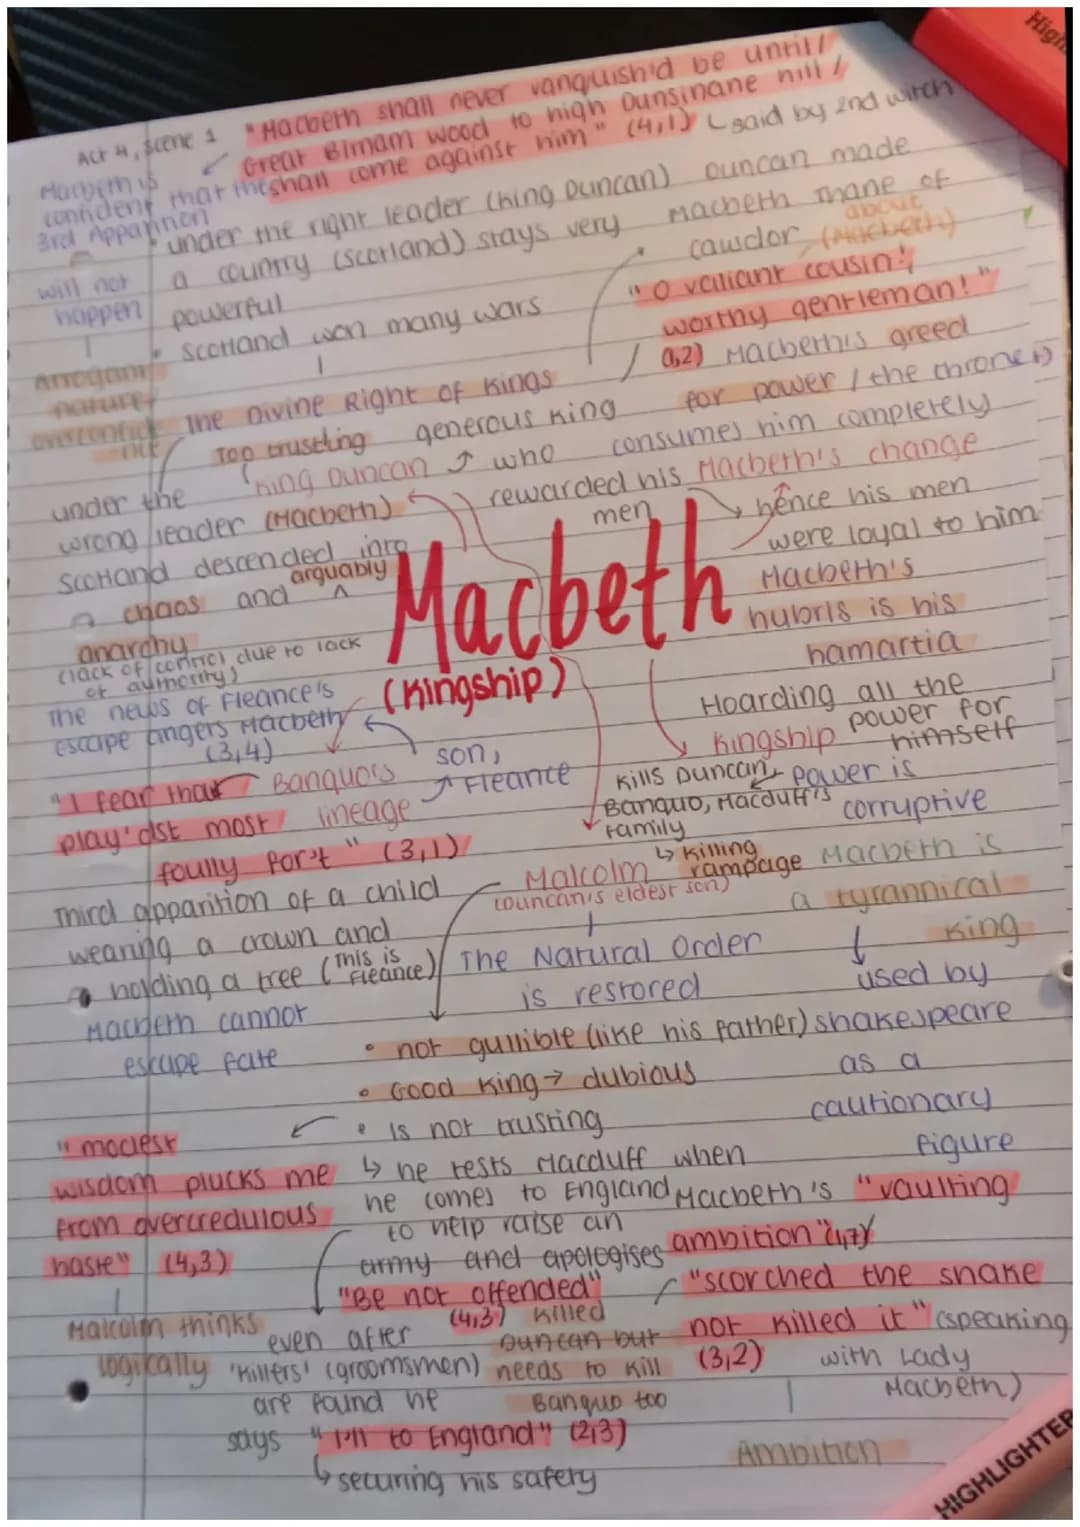 High
Act 4, Scene 1
"Macbeth shall never vanquish'd be until/
Great Birnam wood to high Dunsinane hill /
shall come against him" (4,1)
said by 2nd witch
Macbeth is
confident that the
3rd Apparition
will not
happen
Arrogant
nature/
overconfide
nce
• under the right leader (King Duncan)
a country (Scotland) stays very
powerful
• Scotland won many wars
The Divine Right of Kings
Duncan made
Macbeth Thane of
Cawdor
about
(Macbeth)
"O valiant cousin!,
worthy gentleman!"
(1,2)
Macbeth's greed
for power / the throne
consumes him completely
Macbeth's change
Too trusting
King Duncan
generous king
who
rewarded his
men
hence his men
were loyal to him
under the
wrong leader (Macbeth)
Scotland descended into
chaos and arguably
anarchy
(lack of control due to lack
of authority)
Macbeth
(Kingship)
Macbeth's
hubris is his
hamartia
Hoarding all the
power for
himself
Kingship
power is
corruptive
Kills Duncan,
Banquo, Macduff's
family
killing
rampage
The news of Fleance's
escape angers Macbeth
(3,4)
son,
Fleance
Banquo's
lineage
"I fear thou
play'dst most
foully for't" (3,1)
Third apparition of a child
wearing a crown and
holding a tree (This is
Fleance)
Macbeth cannot
escape fate
Malcolm
(Duncan's eldest son)
The Natural Order
is restored
• not gullible (like his father)
• Good King → dubious
• Is not trusting
he tests Macduff when
he comes to England
to help raise an
army and apologises
"Be not offended"
(4,3)
Macbeth is
a tyrannical
king
used by
Shakespeare
as a
cautionary
figure
"modest
wisdom plucks me
from overcredulous
haste" (4,3)
Malcolm thinks
logically
even after
'killers' (groomsmen)
are found he
says "I'll to England" (2,3)
securing his safety
Macbeth's "vaulting
ambition" (1,7)
"scorched the snake
not killed it" (speaking
(3,2) with Lady
Macbeth)
killed
Duncan but
needs to kill
Banquo too
Ambition
HIGHLIGHTER